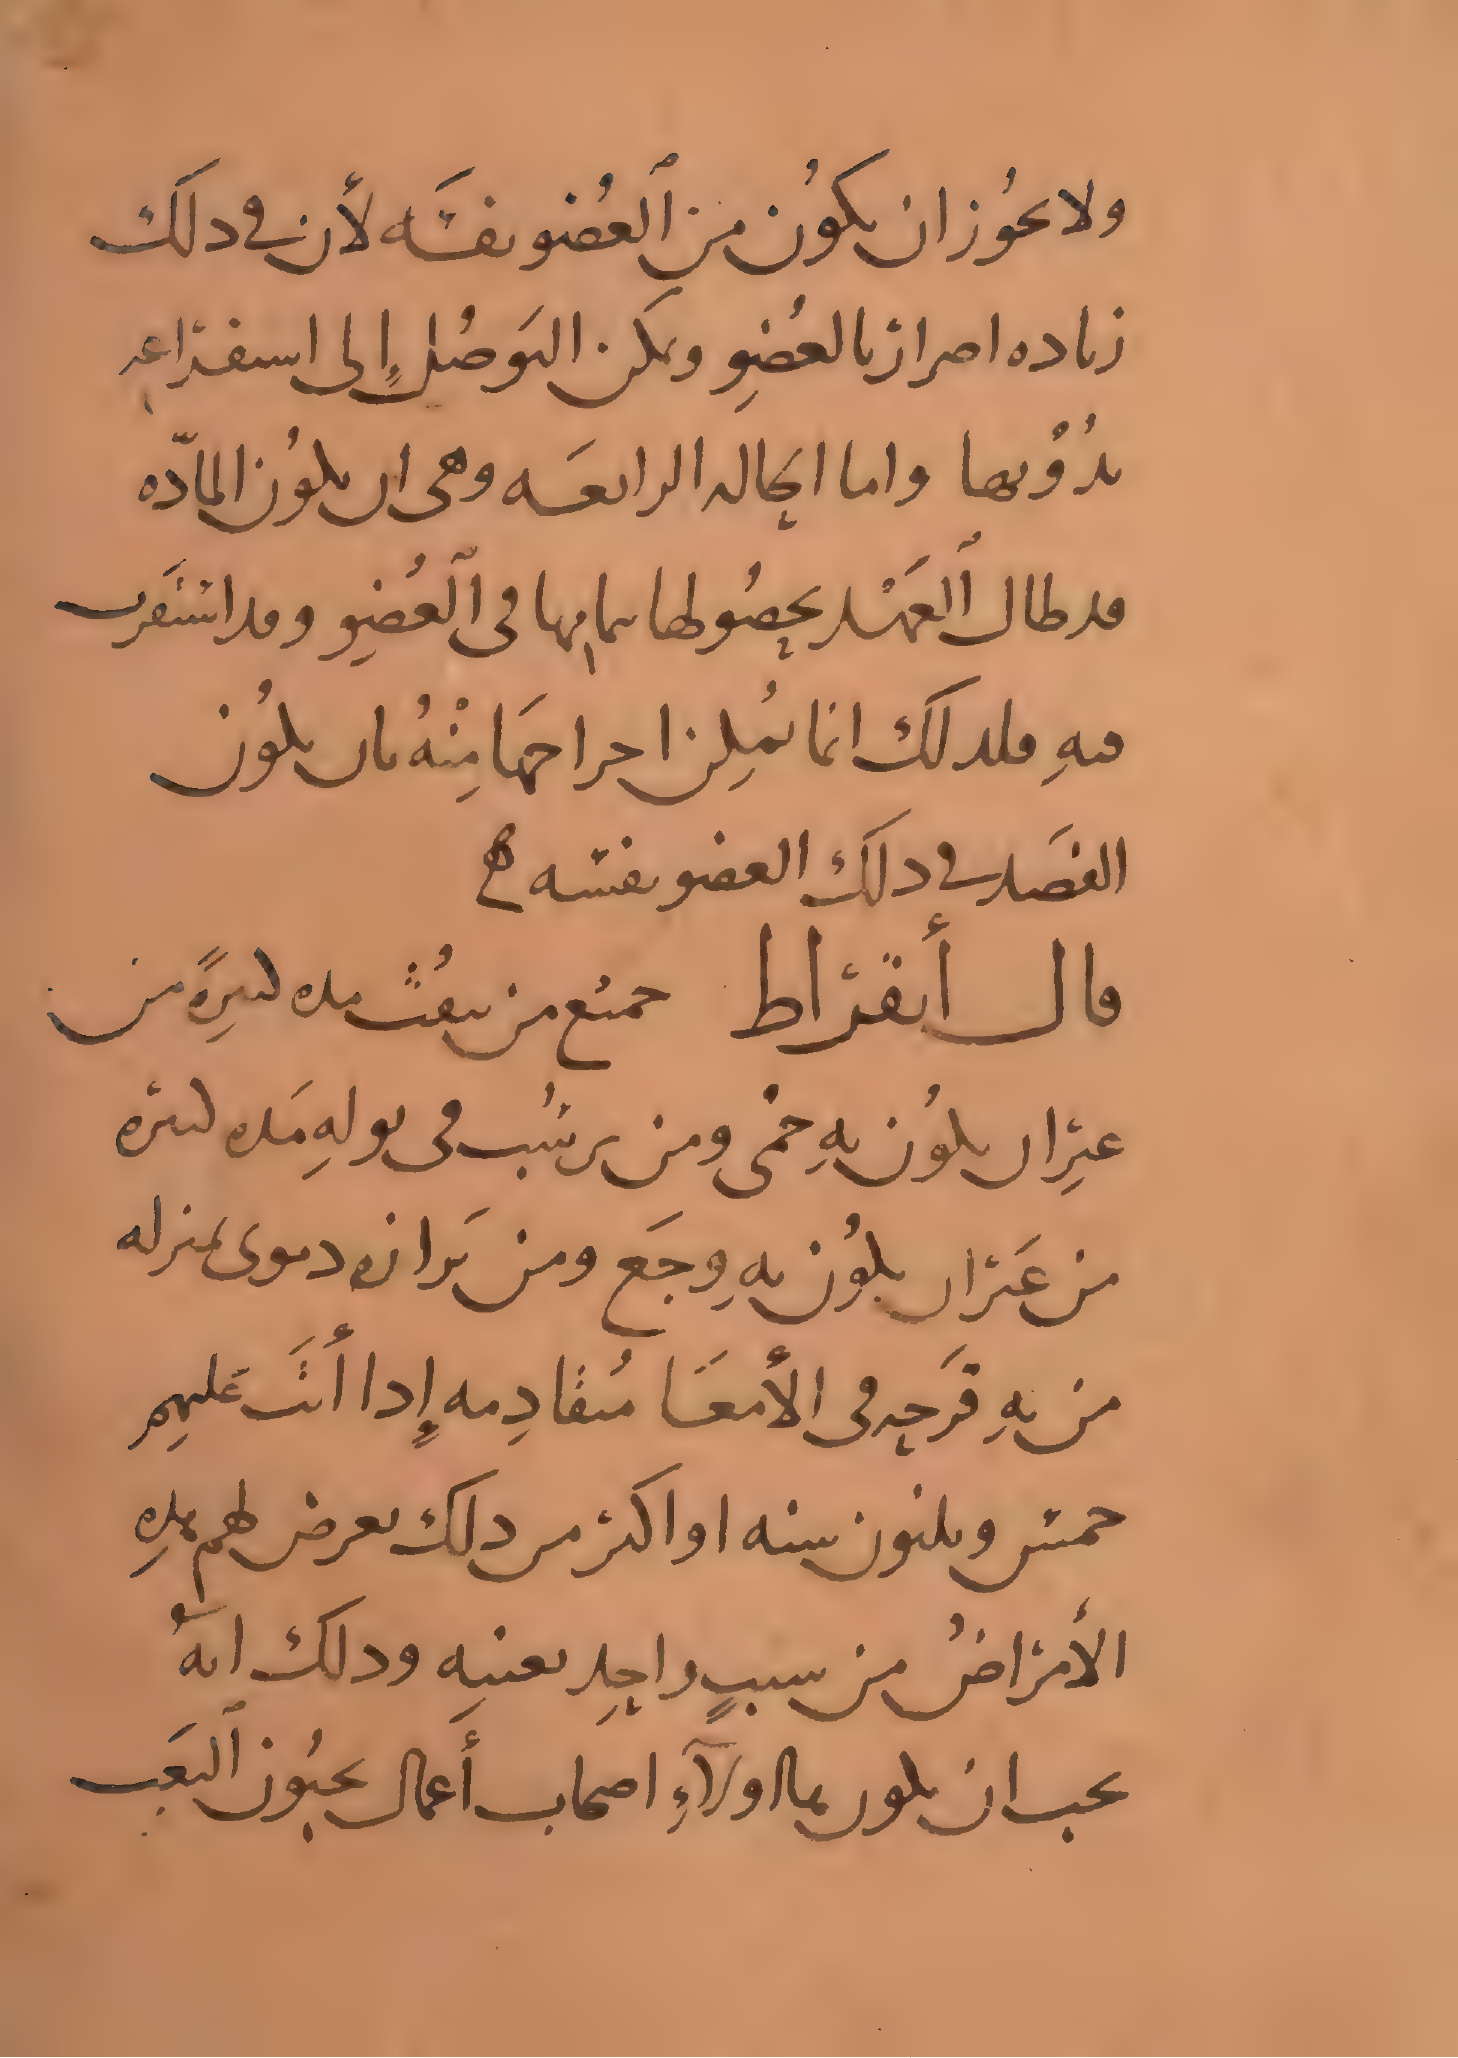 ولا يجوز ان يكون من العضو نفسه لأن في ذلك
زياده اضرار بالعضو ويمكن التوصل إلى استفراغه
بدونها واما الحاله الرابعه وهي ان يكون الماده
قد طال العهد بحصولها بتمامها في العضو وقد استقرت
فيه فلذلك انما يمكن اخراجها منه بان يكون
الفصد في ذلك العضو نفسه
قال أبقراط جميع من ينفث مده كثيرة من
غير ان يكون به حمى ومن يرسب في بوله مده كثيره
من غير ان يكون به وجع ومن برازه دموي بمنزله
من به قرحه في الأمعا متقادمه إذا أتت عليهم
خمس وثلثون سنه او اكثر من ذلك يعرض لهم هذه
الأمراض من سبب واحد بعينه وذلك انه
يجب ان يكون هاولآء اصحاب أعمال يحبون التعب